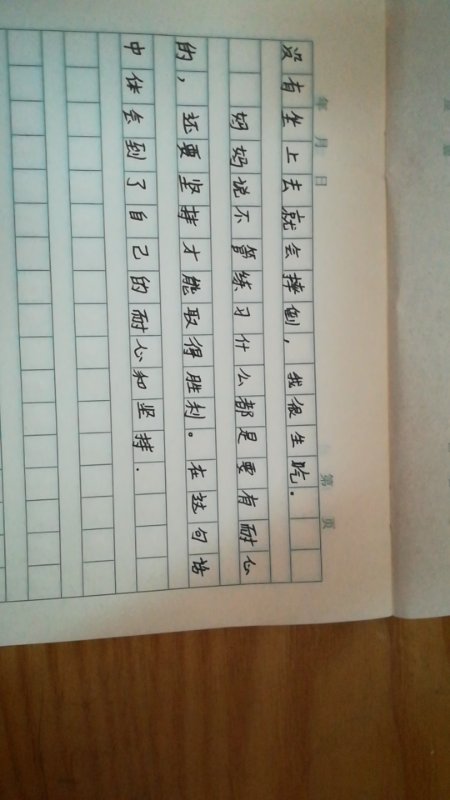 年 月 日 第 页
没有坐上去就会摔倒，我很生吃。
妈妈说不管练习什么都是要有耐心
的，还要坚持才能取得胜利。在这句话
中体会到了自己的耐心和坚持.